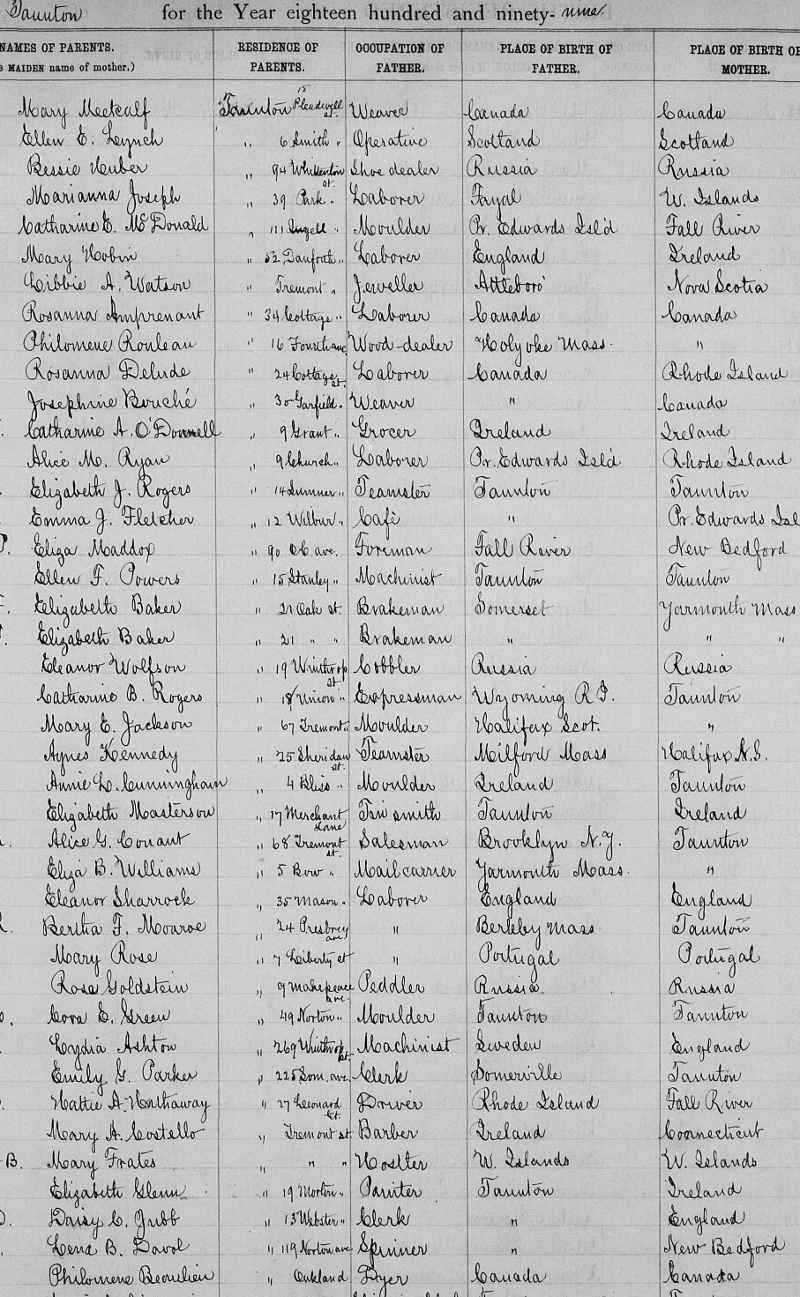 Taunton for the Year eighteen hundred and ninety-nine.
NAMES OF PARENTS. RESIDENCE OF PARENTS. OCCUPATION OF FATHER. PLACE OF BIRTH OF FATHER. PLACE OF BIRTH OF MOTHER.
MAIDEN name of mother.)
Mary Metcalf Taunton 15 st. Weaver Canada Canada
Ellen E. Lynch " 6 Smith " Operative Scotland Scotland
Bessie Huber " 94 Whittenton st. Shoe dealer Russia Russia
Marianna Joseph " 39 Park " Laborer Fayal W. Islands
Catharine E. McDonald " 111 Ingell " Moulder Pr. Edwards Isl'd Fall River
Mary Hobin " 52 Danforth " Laborer England Ireland
Libbie A. Watson " Tremont " Jeweller Attleboro' Nova Scotia
Rosanna Amprenant " 34 Cottage " Laborer Canada Canada
Philomene Rouleau " 16 Fourth ave Wood-dealer Holyoke Mass. "
Rosanna Delude " 24 Cottage st. Laborer Canada Rhode Island
Josephine Bouché " 30 Garfield " Weaver " Canada
Catharine A. O'Donnell " 9 Grant " Grocer Ireland Ireland
Alice M. Ryan " 9 Church " Laborer Pr. Edwards Isl'd Rhode Island
Elizabeth J. Rogers " 14 Sumner " Teamster Taunton Taunton
Emma J. Fletcher " 12 Wilbur " Café " Pr. Edwards Isl
Eliza Maddox " 90 ave. Foreman Fall River New Bedford
Ellen F. Powers " 15 Stanley " Machinist Taunton Taunton
Elizabeth Baker " 21 Oak st. Brakeman Somerset Yarmouth Mass
Elizabeth Baker " 21 " " Brakeman " " "
Eleanor Wolfson " 19 Winthrop st. Cobbler Russia Russia
Catharine B. Rogers " 18 Union " Expressman Wyoming R.I. Taunton
Mary E. Jackson " 67 Tremont " Moulder Halifax Scot. "
Agnes Kennedy " 25 Sheridan st. Teamster Milford Mass Halifax N.S.
Annie L. Cunningham " 4 Bliss " Moulder Ireland Taunton
Elizabeth Masterson " 17 Merchant Lane Tin smith Taunton Ireland
Alice G. Conant " 68 Tremont st. Salesman Brooklyn N.Y. Taunton
Eliza B. Williams " 5 Bow " Mail carrier Yarmouth Mass. "
Eleanor Sharrock " 35 Mason " Laborer England England
Bertha F. Monroe " 24 Presbrey ave " Berkley Mass Taunton
Mary Rose " 7 Liberty st " Portugal Portugal
Rose Goldstein " 9 Makepeace ave. Peddler Russia. Russia
Cora E. Green " 49 Norton " Moulder Taunton Taunton
Lydia Ashton " 269 Winthrop st. Machinist Sweden England
Emily G. Parker " 225 Som. ave. Clerk Somerville Taunton
Hattie A. Hathaway " 27 Leonard st. Driver Rhode Island Fall River
Mary A. Costello " Tremont st Barber Ireland Connecticut
B. Mary Frates " " " Hostler W. Islands W. Islands
Elizabeth Glenn " 19 Morton " Painter Taunton Ireland
Daisy C. Jubb " 15 Webster " Clerk " England
Lena B. Davol " 119 Norton ave Spinner " New Bedford
Philomene Beaulieu " Oakland Dyer Canada Canada